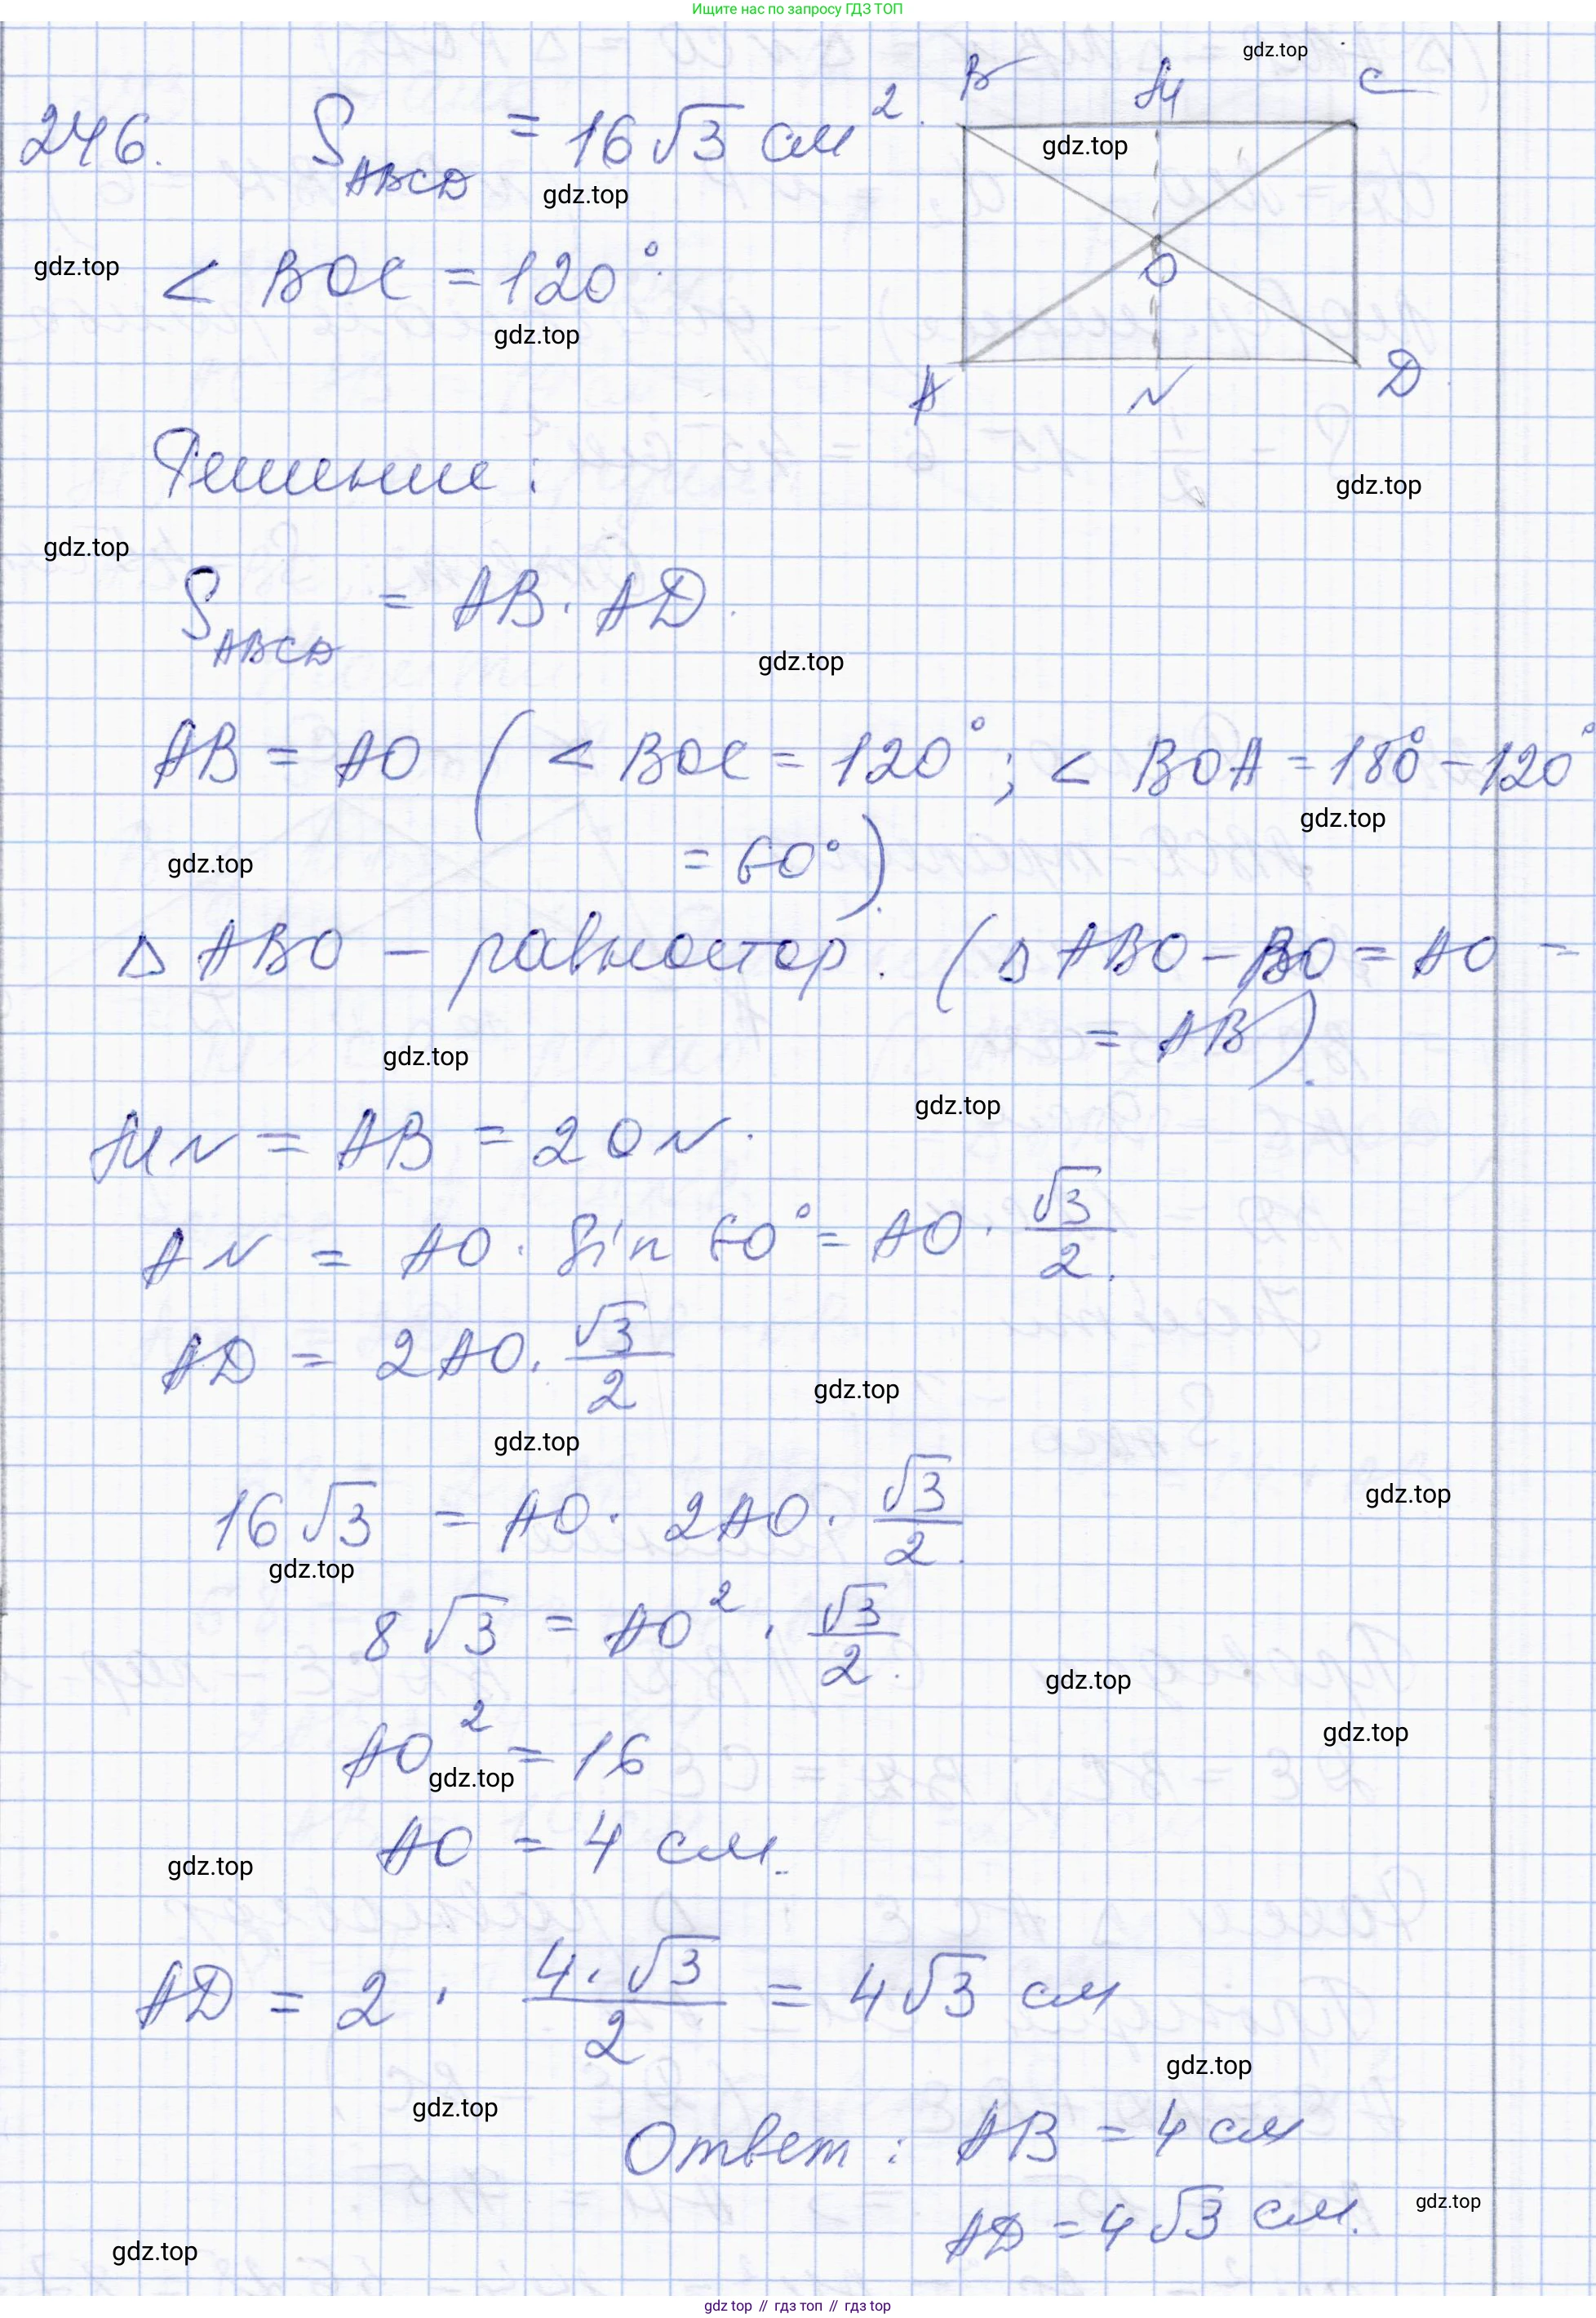 Ищите нас по запросу ГДЗ ТОП
gdz.top
B M C
246. S_ABCD = 16√3 см².
gdz.top
gdz.top
gdz.top
< BOC = 120°.
O
gdz.top
A N D
Решение:
gdz.top
gdz.top
S_ABCD = AB · AD.
gdz.top
AB = AO (< BOC = 120°; < BOA = 180° - 120°
gdz.top
gdz.top
= 60°).
Δ ABO – равностор. (Δ ABO – BO = AO =
= AB).
gdz.top
gdz.top
MN = AB = 2ON.
AN = AO · Sin 60° = AO · √3/2.
AD = 2AO · √3/2
gdz.top
gdz.top
gdz.top
16√3 = AO · 2AO · √3/2.
gdz.top
8√3 = AO² · √3/2.
gdz.top
gdz.top
AO² = 16
gdz.top
AO = 4 см.
gdz.top
AD = 2 · 4·√3/2 = 4√3 см
gdz.top
gdz.top
Ответ: AB = 4 см
gdz.top
AD = 4√3 см.
gdz.top
gdz top // гдз топ // гдз top